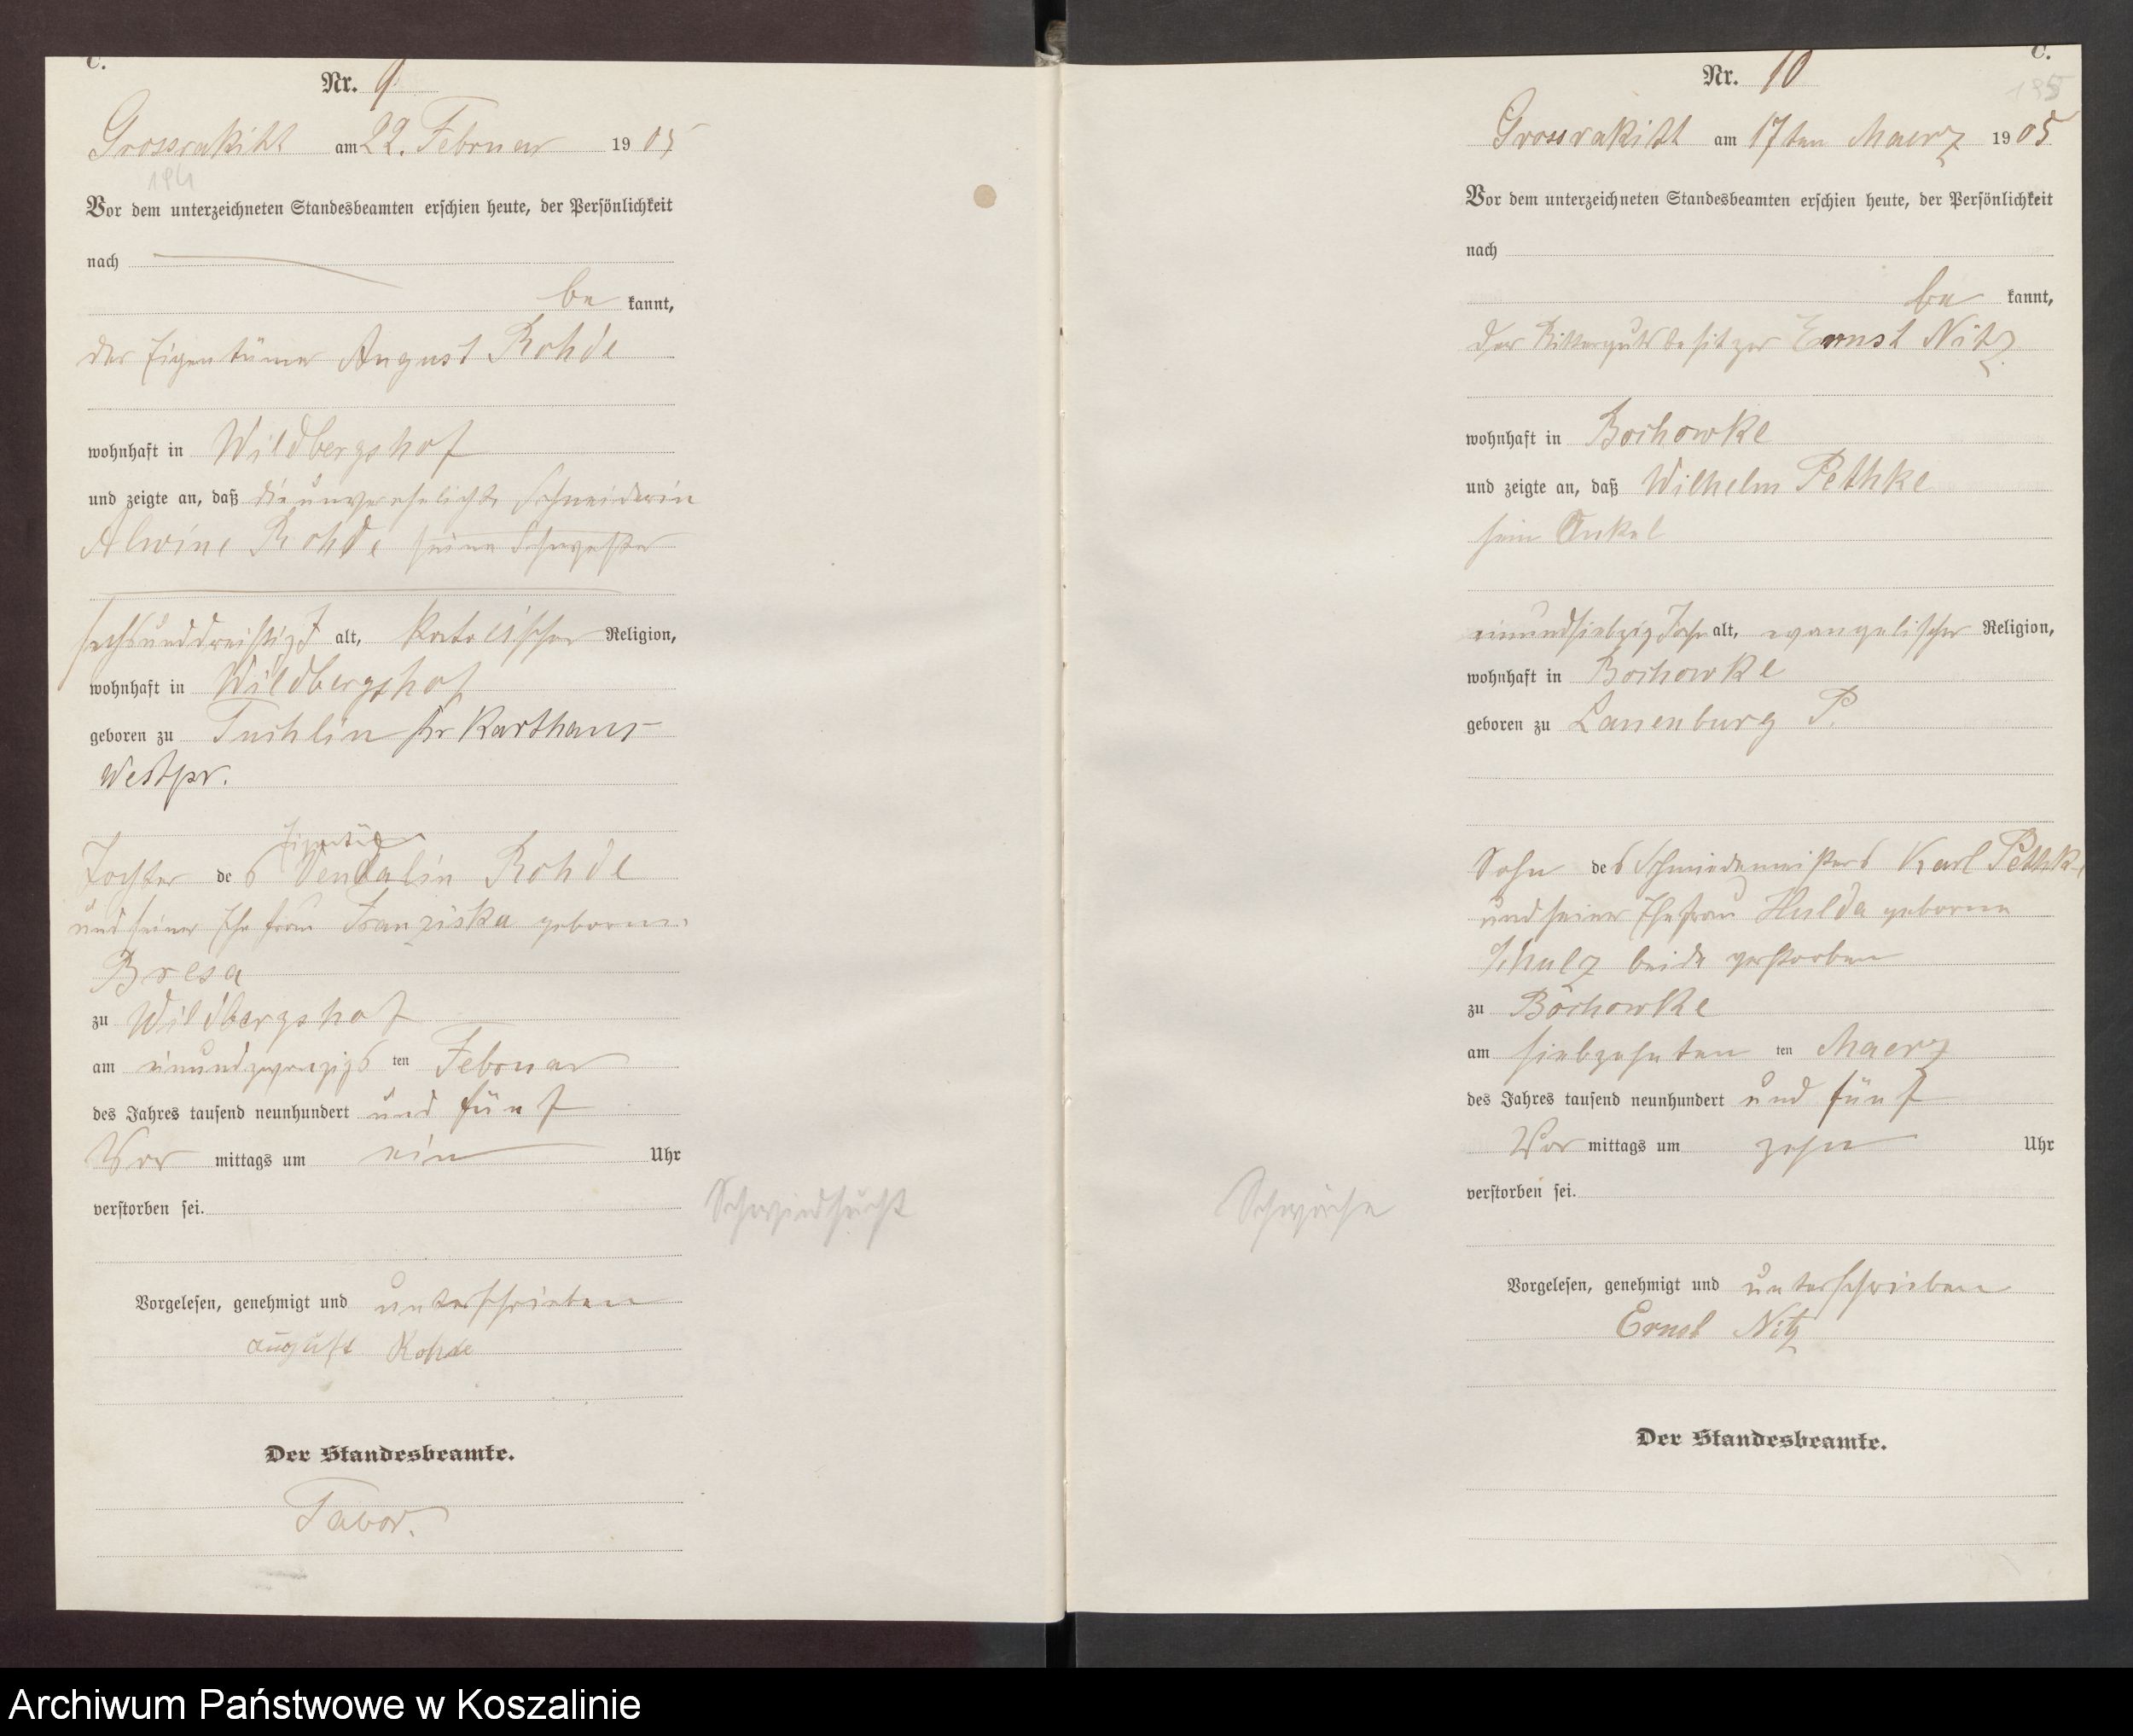 C.
Nr. 9
Grossrakitt am 22. Februar 1905
194
Vor dem unterzeichneten Standesbeamten erschien heute, der Persönlichkeit
nach
be kannt,
der Eigentümer August Rohde
wohnhaft in Wildbergshof
und zeigte an, daß die unverehelichte Schneiderin
Alwine Rohde seine Schwester
sechsunddreissig J alt, katolischer Religion,
wohnhaft in Wildbergshof
geboren zu Tuchlin Kr Karthaus
Westpr.
Eigentümer
Tochter des Vendalin Rohde
und seiner Ehefrau Franziska geborene
Bresa
zu Wildbergshof
am einundzwanzigs ten Februar
des Jahres tausend neunhundert und fünf
Vor mittags um ein Uhr
verstorben sei.
Schwindsucht
Vorgelesen, genehmigt und unterschrieben
August Rohde
Der Standesbeamte.
Tabor.
C.
195
Nr. 10
Grossrakitt am 17ten Maerz 1905
Vor dem unterzeichneten Standesbeamten erschien heute, der Persönlichkeit
nach
be kannt,
der Rittergutsbesitzer Ernst Nitz
wohnhaft in Bochowke
und zeigte an, daß Wilhelm Pethke
sein Onkel
einundsiebzig Jahr alt, evangelischer Religion,
wohnhaft in Bochowke
geboren zu Lauenburg P.
Sohn des Schmiedemeisters Karl Pethke
und seiner Ehefrau Hulda geborene
Schulz beide verstorben
zu Bochowke
am siebzehnten ten Maerz
des Jahres tausend neunhundert und fünf
Vor mittags um zehn Uhr
verstorben sei.
Schwäche
Vorgelesen, genehmigt und unterschrieben
Ernst Nitz
Der Standesbeamte.
Archiwum Państwowe w Koszalinie